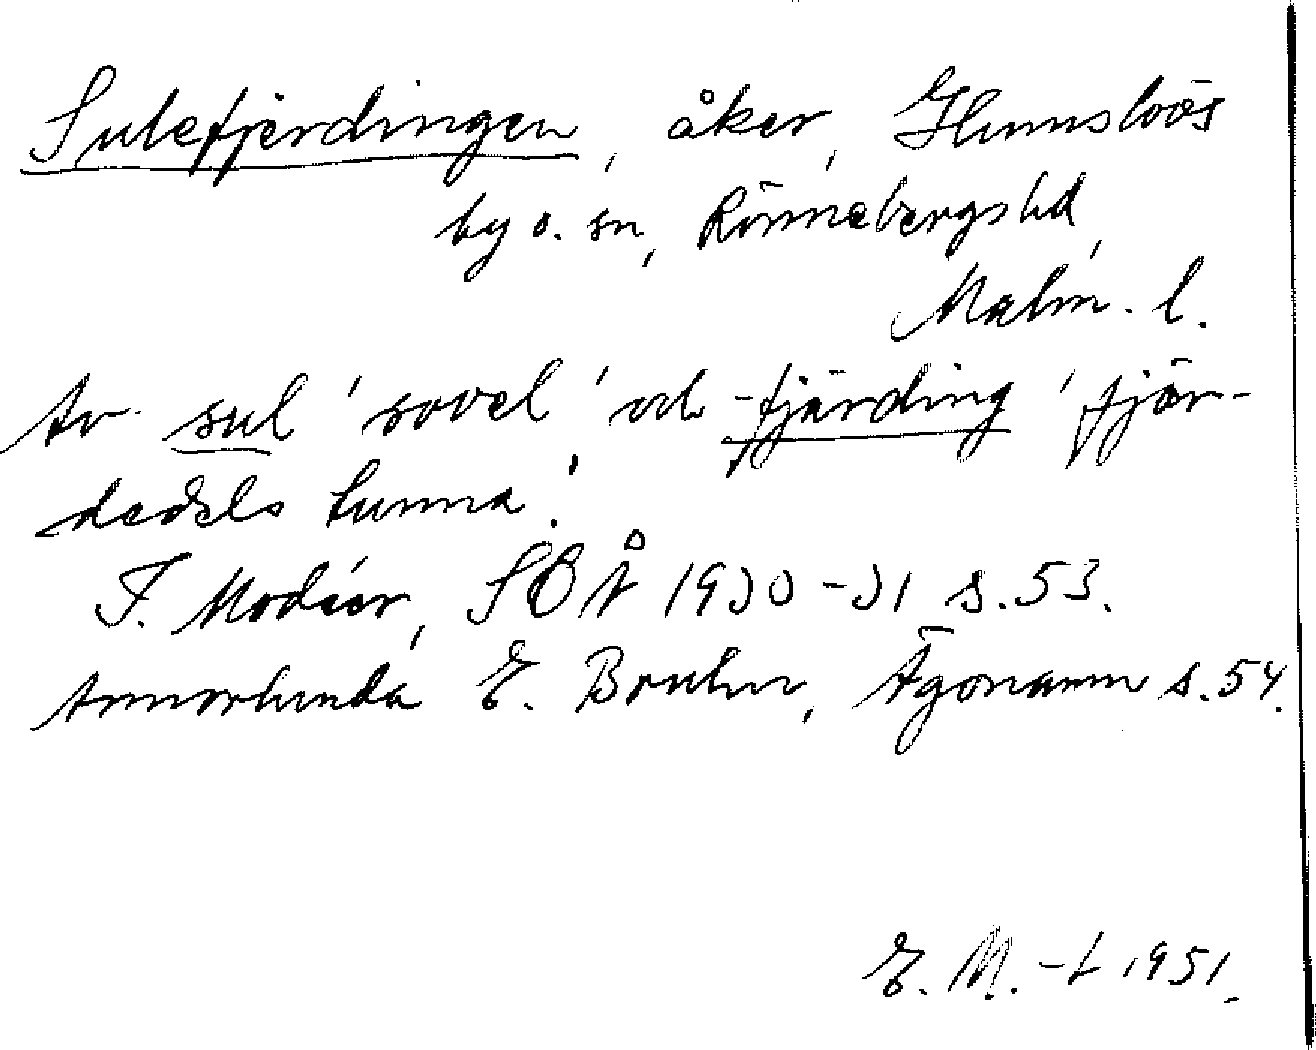 Sulefjerdingen, åker, Glumslövs
by o. sn, Rönnebergs hd,
Malm. l.
Av sul 'sovel' och -fjärding 'fjär-
dedels tunna'.
I. Modéer, SOÅ 1930-31 s. 53.
Annorlunda E. Bruhn, Ägonamn s. 54.
E. M.-t 1951.